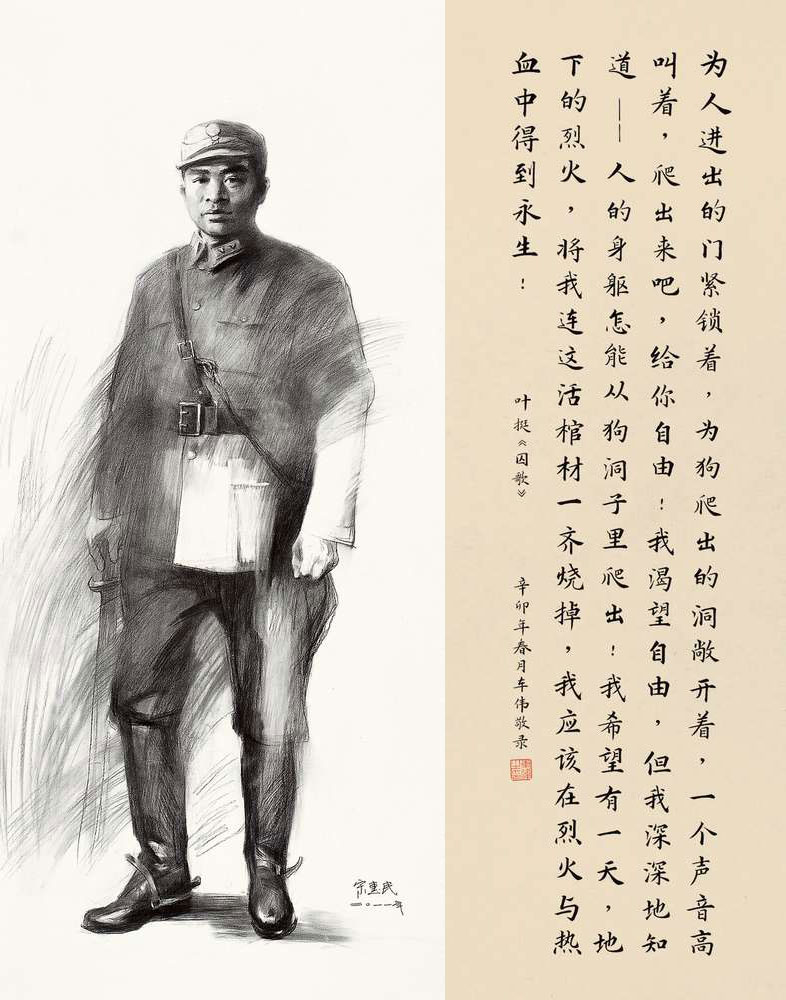 为人进出的门紧锁着，为狗爬出的洞敞开着，一个声音高
叫着，爬出来吧，给你自由！我渴望自由，但我深深地知
道——人的身躯怎能从狗洞子里爬出！我希望有一天，地
下的烈火，将我连这活棺材一齐烧掉，我应该在烈火与热
血中得到永生！
叶挺《囚歌》
辛卯年春月车伟敬录
宗惠民
二〇一一年